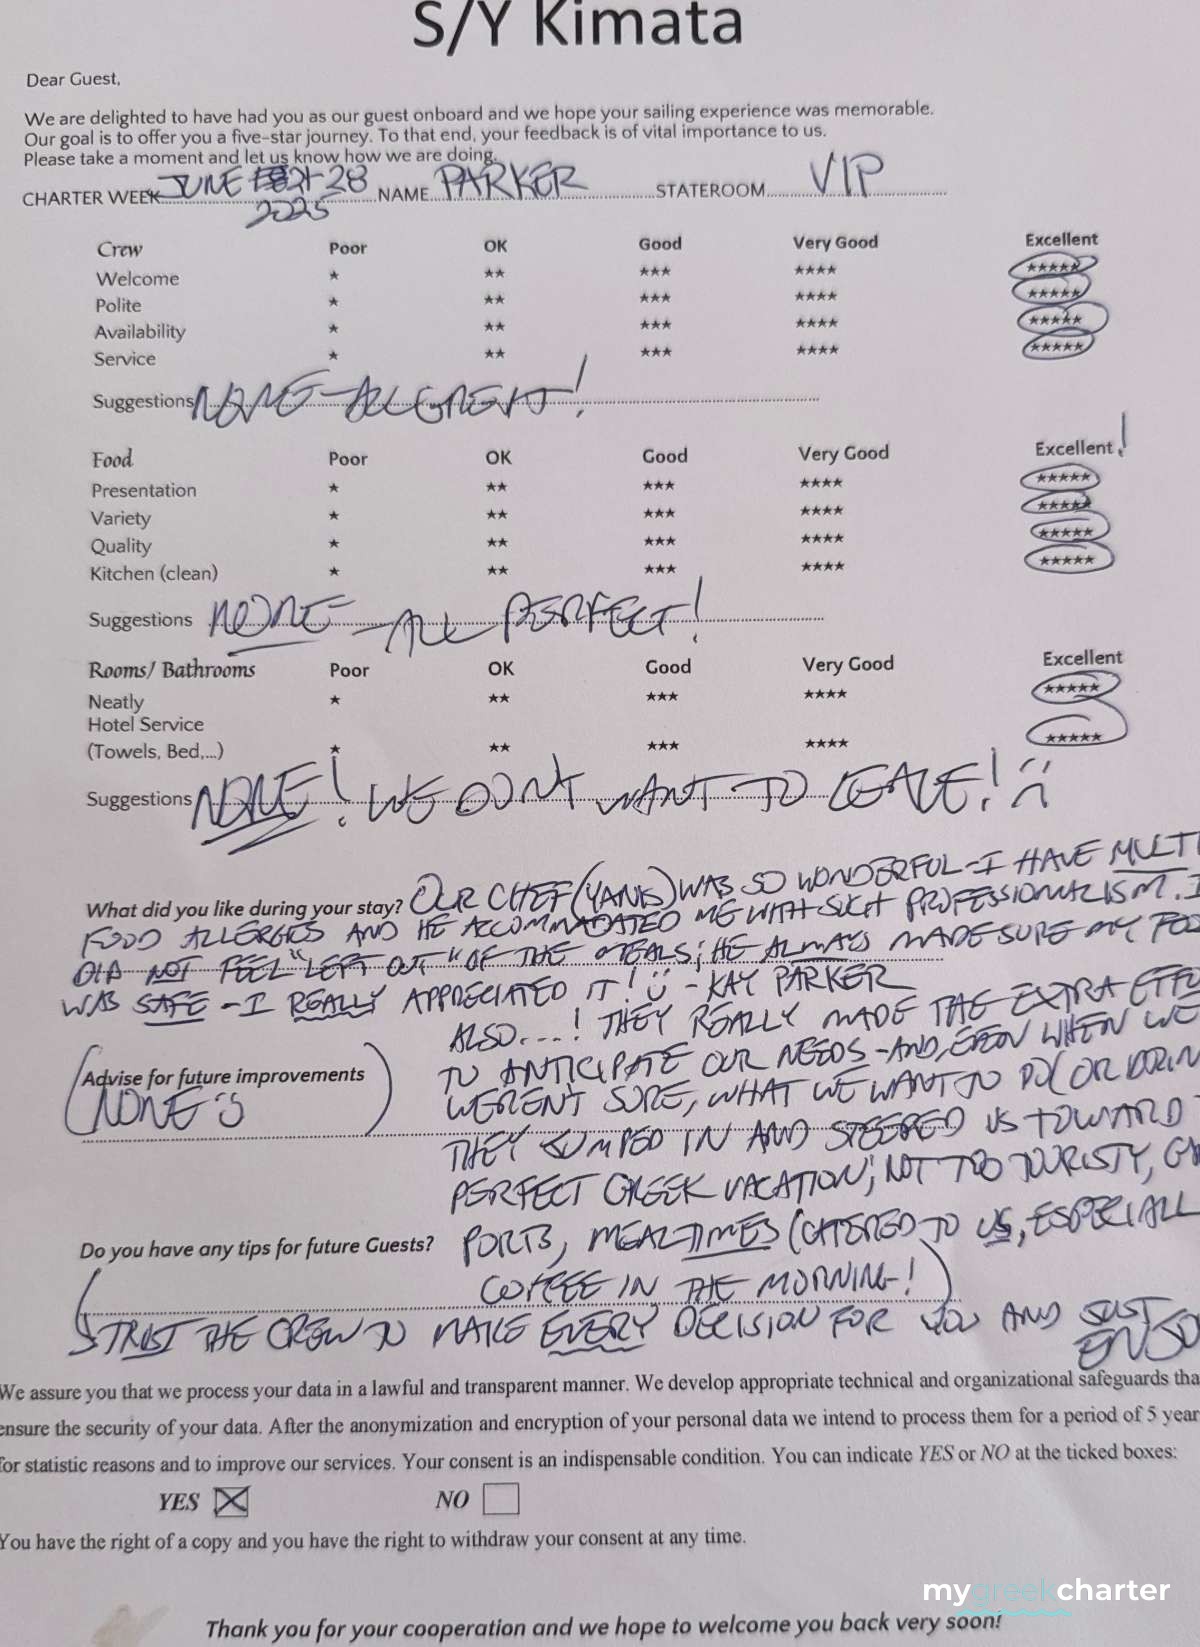 S/Y Kimata
Dear Guest,
We are delighted to have had you as our guest onboard and we hope your sailing experience was memorable.
Our goal is to offer you a five-star journey. To that end, your feedback is of vital importance to us.
Please take a moment and let us know how we are doing.
CHARTER WEEK JUNE 21-28 NAME PARKER STATEROOM VIP
2025
Crew Poor OK Good Very Good Excellent
Welcome ★ ★★ ★★★ ★★★★ ★★★★★
Polite ★ ★★ ★★★ ★★★★ ★★★★★
Availability ★ ★★ ★★★ ★★★★ ★★★★★
Service ★ ★★ ★★★ ★★★★ ★★★★★
Suggestions NONE - ALL GREAT!
Food Poor OK Good Very Good Excellent!
Presentation ★ ★★ ★★★ ★★★★ ★★★★★
Variety ★ ★★ ★★★ ★★★★ ★★★★★
Quality ★ ★★ ★★★ ★★★★ ★★★★★
Kitchen (clean) ★ ★★ ★★★ ★★★★ ★★★★★
Suggestions NONE - ALL PERFECT!
Rooms/ Bathrooms Poor OK Good Very Good Excellent
Neatly ★ ★★ ★★★ ★★★★ ★★★★★
Hotel Service
(Towels, Bed,...) ★ ★★ ★★★ ★★★★ ★★★★★
Suggestions NONE! WE DON'T WANT TO LEAVE! :(
What did you like during your stay? OUR CHEF (YANIS) WAS SO WONDERFUL - I HAVE MULTI
FOOD ALLERGIES AND HE ACCOMMADATED ME WITH SUCH PROFESSIONALISM. I
DID NOT FEEL "LEFT OUT" OF THE MEALS; HE ALWAYS MADE SURE MY FOO
WAS SAFE - I REALLY APPRECIATED IT! :) - KAY PARKER
ALSO...! THEY REALLY MADE THE EXTRA EFFO
TO ANTICIPATE OUR NEEDS - AND, EVEN WHEN WE
Advise for future improvements
(NONE :))
WEREN'T SURE, WHAT WE WANT TO DO (OR DRIN
THEY JUMPED IN AND STEERED US TOWARD
PERFECT GREEK VACATION; NOT TOO TOURISTY,
Do you have any tips for future Guests?
PORTS, MEAL-TIMES (CATERED TO US, ESPECIALL
COFFEE IN THE MORNING!)
TRUST THE CREW TO MAKE EVERY DECISION FOR YOU AND JUST
ENJO
We assure you that we process your data in a lawful and transparent manner. We develop appropriate technical and organizational safeguards tha
ensure the security of your data. After the anonymization and encryption of your personal data we intend to process them for a period of 5 year
for statistic reasons and to improve our services. Your consent is an indispensable condition. You can indicate YES or NO at the ticked boxes:
YES ☒ NO ☐
You have the right of a copy and you have the right to withdraw your consent at any time.
mygreekcharter
Thank you for your cooperation and we hope to welcome you back very soon!